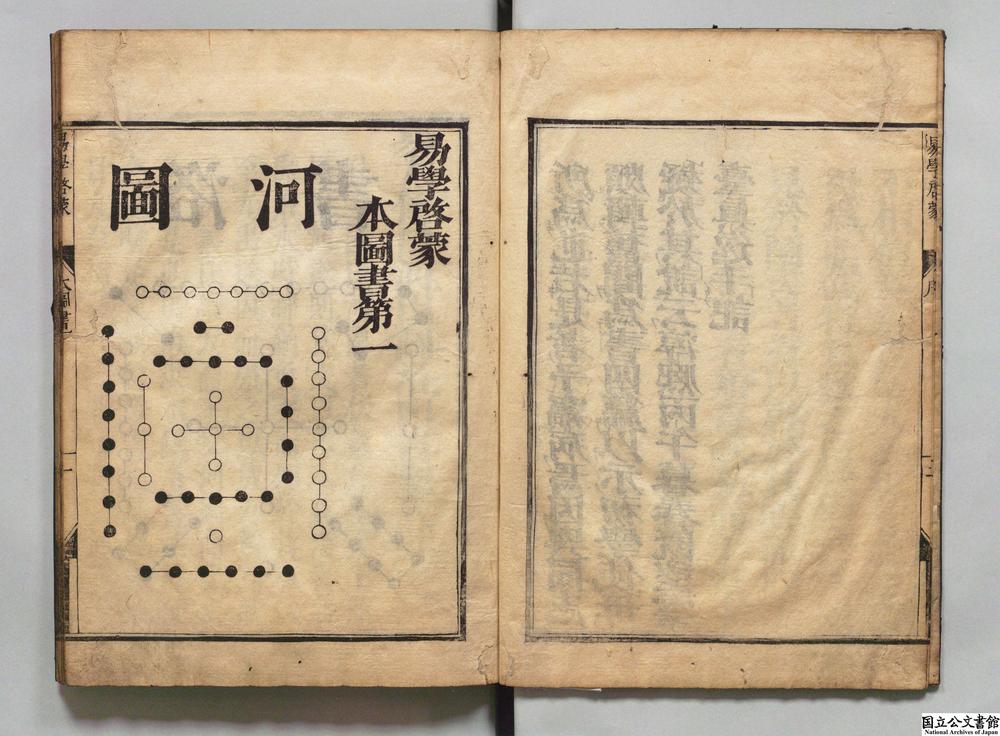 易學啓蒙
本圖書第一
河圖
易學啓蒙
本圖書
一
易學啓蒙
序
三
国立公文書館
National Archives of Japan